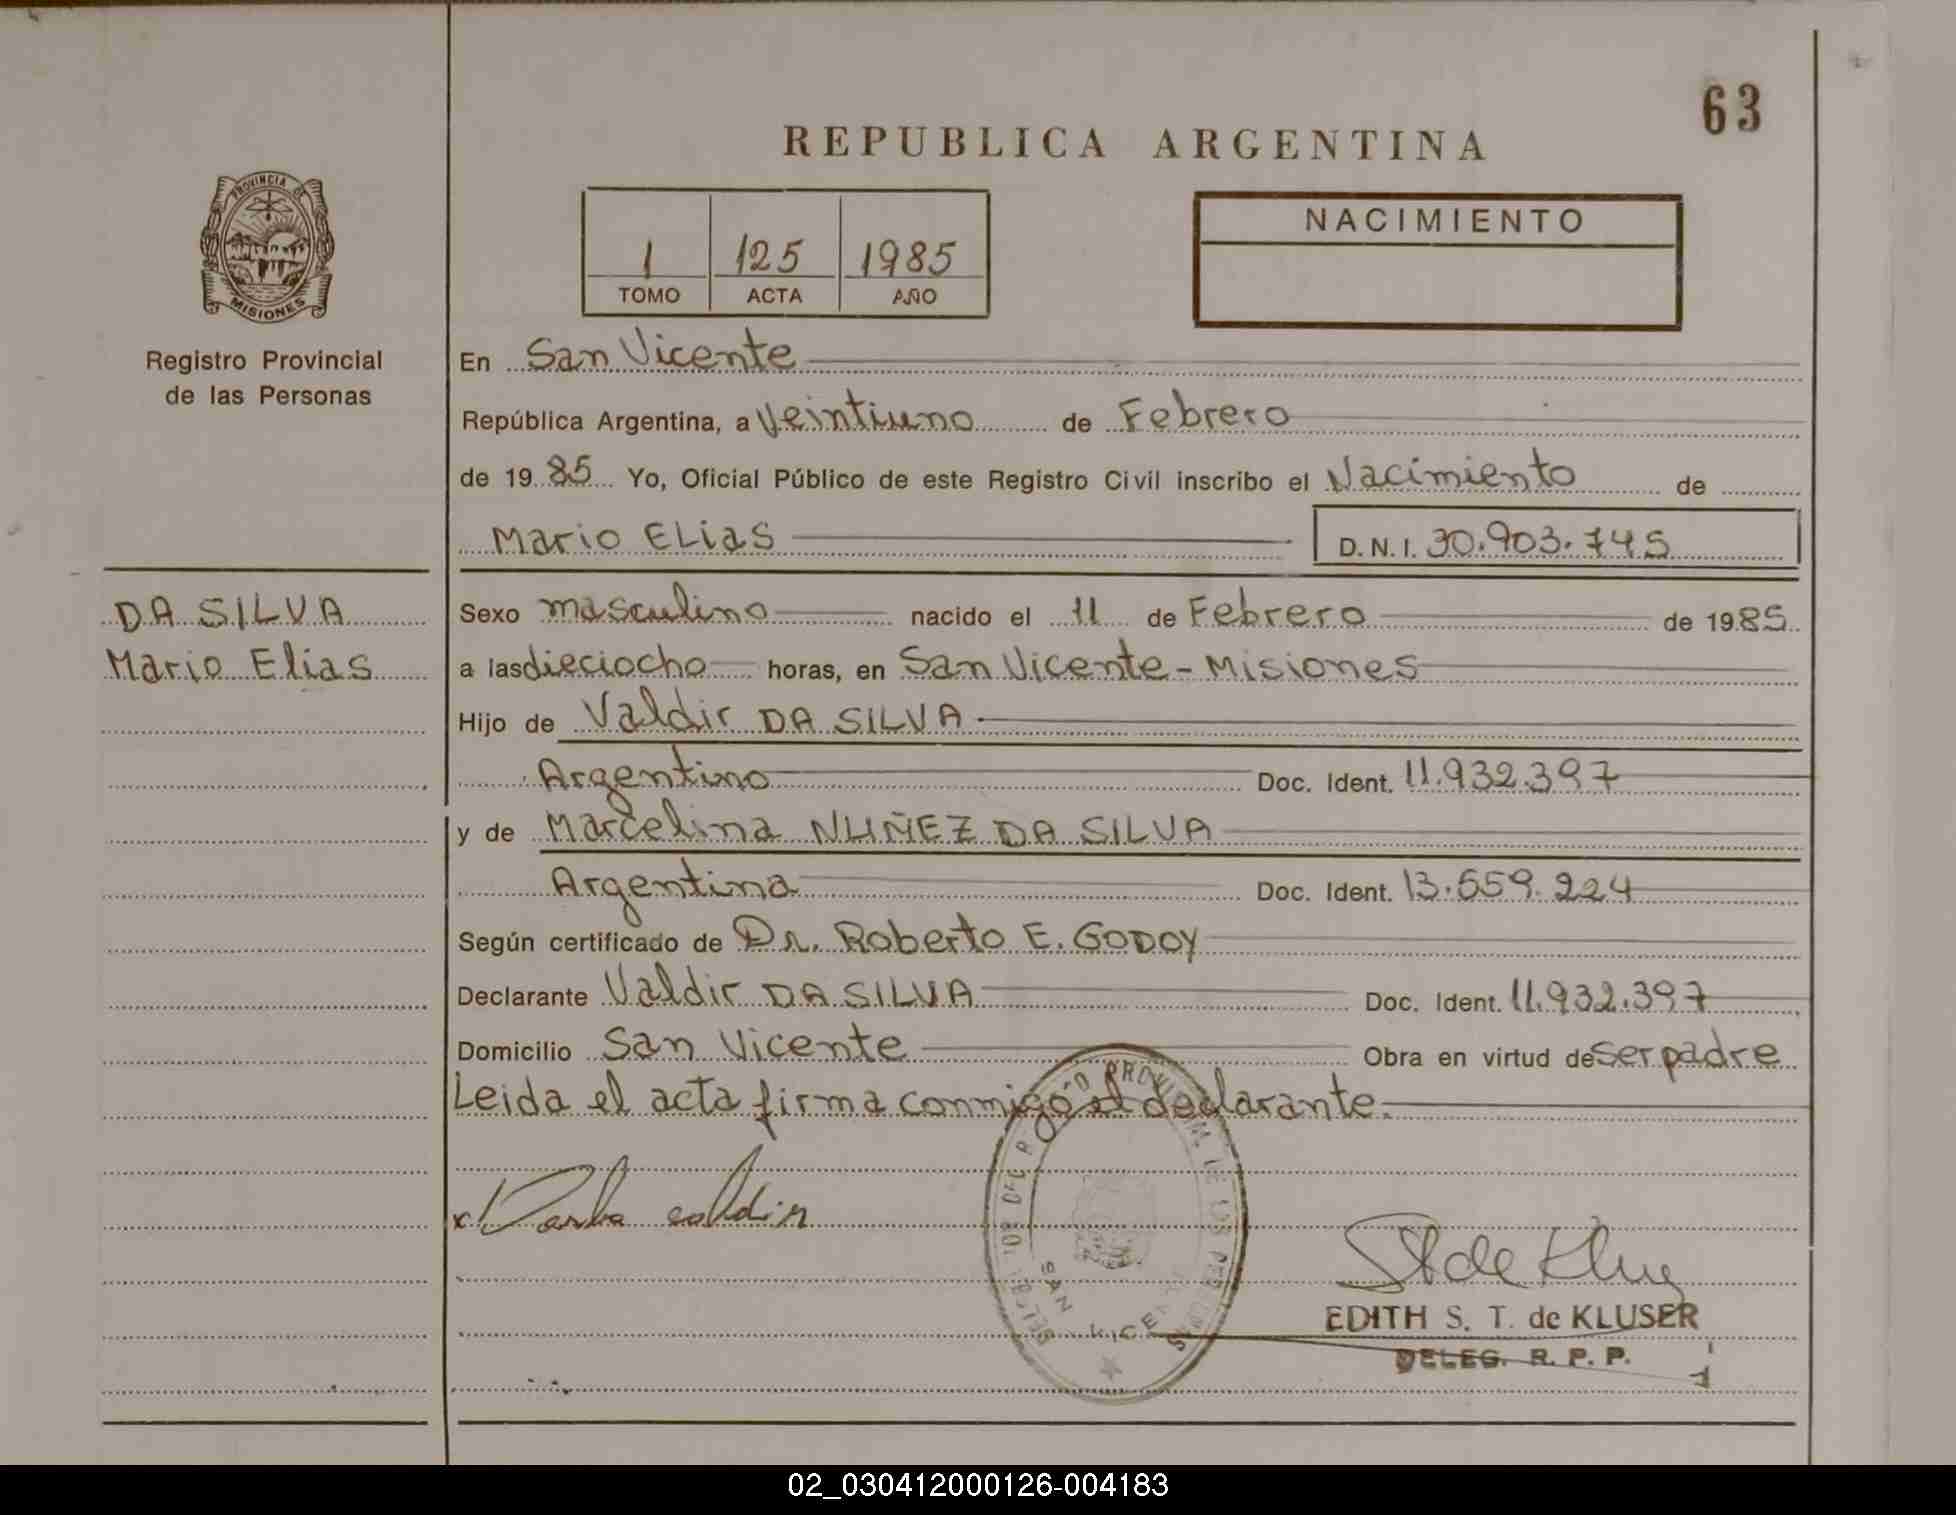 63
REPUBLICA ARGENTINA
PROVINCIA DE
MISIONES
Registro Provincial
de las Personas
1 125 1985
TOMO ACTA AÑO
NACIMIENTO
En San Vicente
República Argentina, a Veintiuno de Febrero
de 1985 Yo, Oficial Público de este Registro Civil inscribo el Nacimiento de
Mario ELias D.N.I. 30.903.745
DA SILVA
Mario Elias
Sexo masculino nacido el 11 de Febrero de 1985
a las dieciocho horas, en San Vicente - Misiones
Hijo de Valdir DA SILVA
Argentino Doc. Ident. 11.932.397
y de Marcelina NUÑEZ DA SILVA
Argentina Doc. Ident. 13.559.224
Según certificado de Dr. Roberto E. GODOY
Declarante Valdir DA SILVA Doc. Ident. 11.932.397
Domicilio San Vicente Obra en virtud de ser padre
Leida el acta firma conmigo el declarante.
SAN VICENTE
EDITH S. T. de KLUSER
DELEG. R. P. P.
02_030412000126-004183